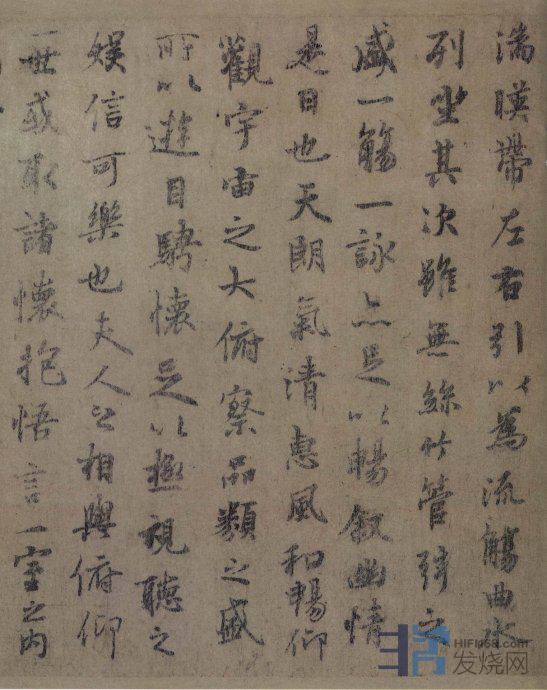 湍暎帶左右引以為流觴曲水
列坐其次雖無絲竹管弦之
盛一觴一詠亦足以暢敘幽情
是日也天朗氣清惠風和暢仰
觀宇宙之大俯察品類之盛
所以遊目騁懷足以極視聽之
娛信可樂也夫人之相與俯仰
一世或取諸懷抱悟言一室之內
HIFI168.com
发烧网